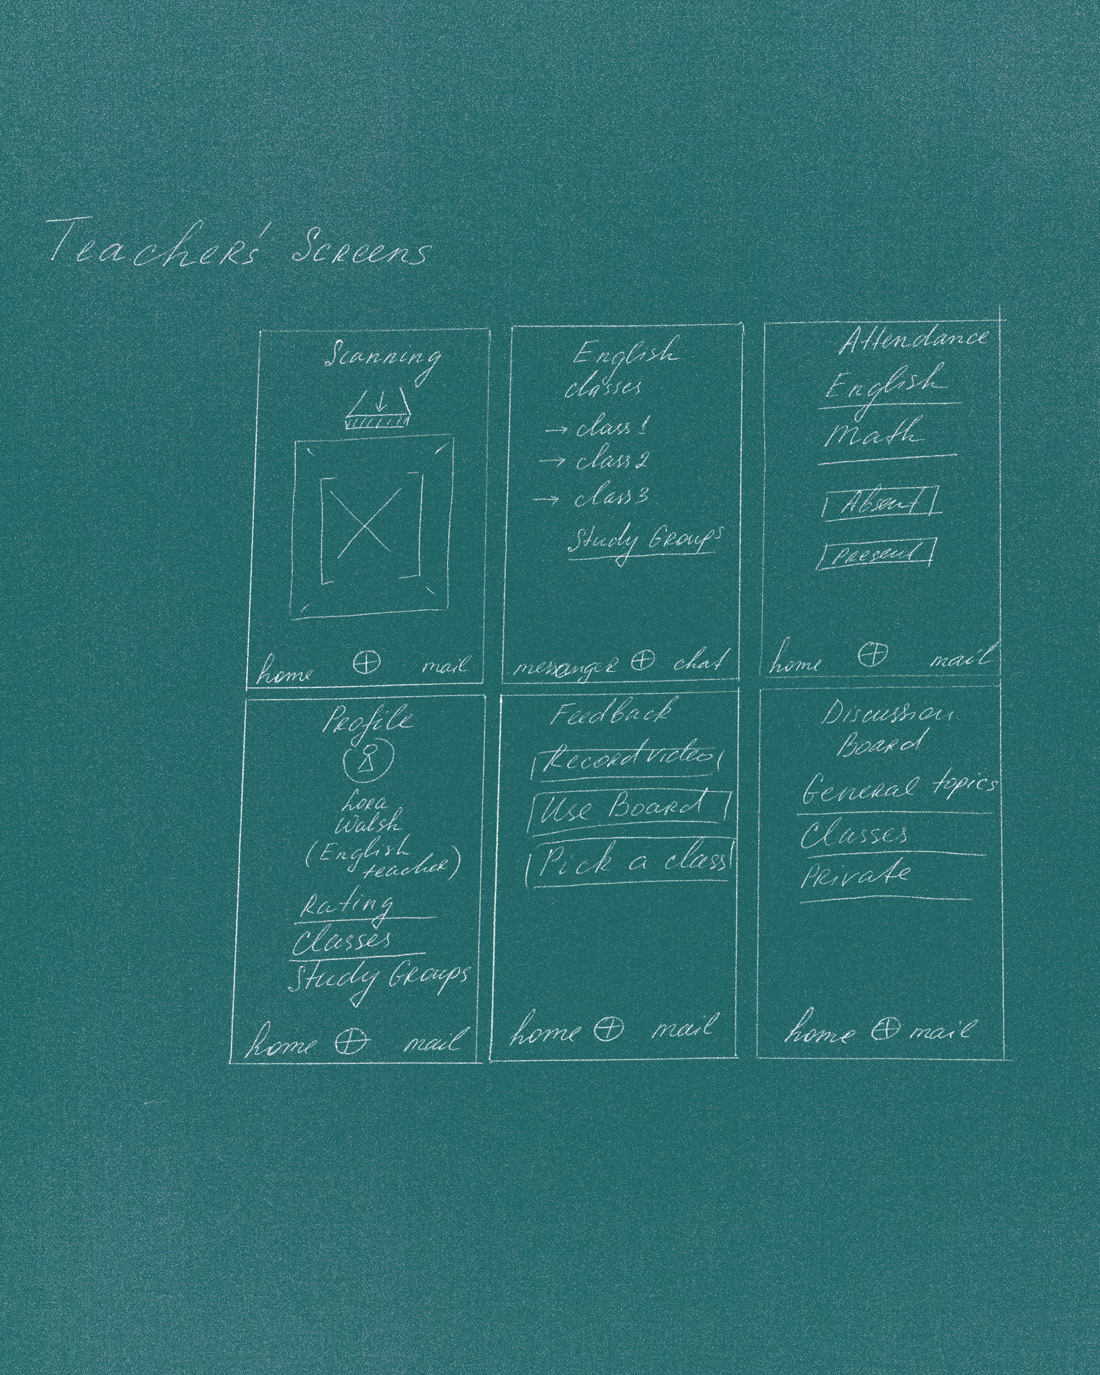 Teacher's Screens
Scanning
home mail
English
classes
→ class 1
→ class 2
→ class 3
Study Groups
messanger chat
Attendance
English
Math
Absent
Present
home mail
Profile
Lora
Walsh
(English
teacher)
Rating
Classes
Study Groups
home mail
Feedback
Record video
Use Board
Pick a class
home mail
Discussion
Board
General topics
Classes
Private
home mail